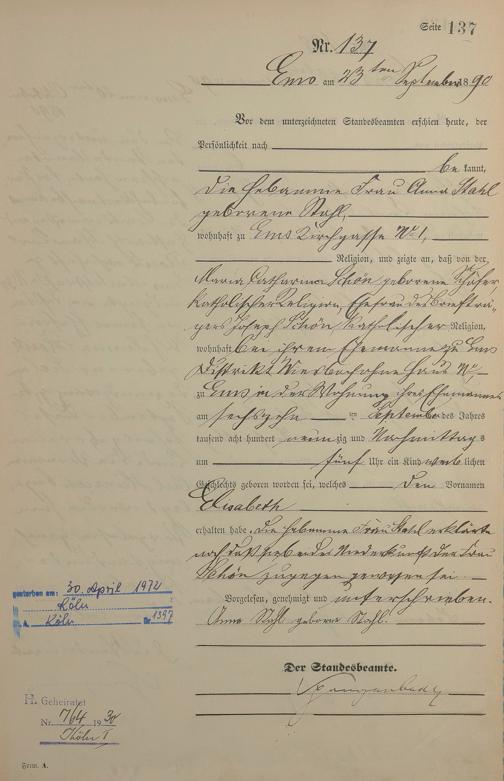 Seite 137
Nr. 137
Ems am 23ten September 1890
Vor dem unterzeichneten Standesbeamten erschien heute, der
Persönlichkeit nach
bekannt,
die Hebamme Frau Anna Stahl
geborene Stahl,
wohnhaft zu Ems Kirchgasse No 1,
Religion, und zeigte an, daß von der
Maria Catharina Schön geborene Schäfer
katholischer Religion, Ehefrau des Brieftrā-
gers Joseph Schön katholischer Religion,
wohnhaft bei ihrem Ehemanne zu Ems
Distrikt Haus No
zu Ems in der Wohnung ihres Ehemannes
am sechszehnten September des Jahres
tausend acht hundert neunzig und Nachmittags
um fünf Uhr ein Kind weiblichen
Geschlechts geboren worden sei, welches den Vornamen
Elisabeth
erhalten habe. Die Hebamme Frau Stahl erklärte
noch daß sie bei der Niederkunft der Frau
Schön zugegen gewesen sei
Vorgelesen, genehmigt und unterschrieben.
Anna Stahl geborne Stahl.
Der Standesbeamte.
gestorben am: 30. April 1972
Köln
St. A. Köln Nr. 1397
H. Geheiratet
Nr. 764 1930
Köln I
Form. A.